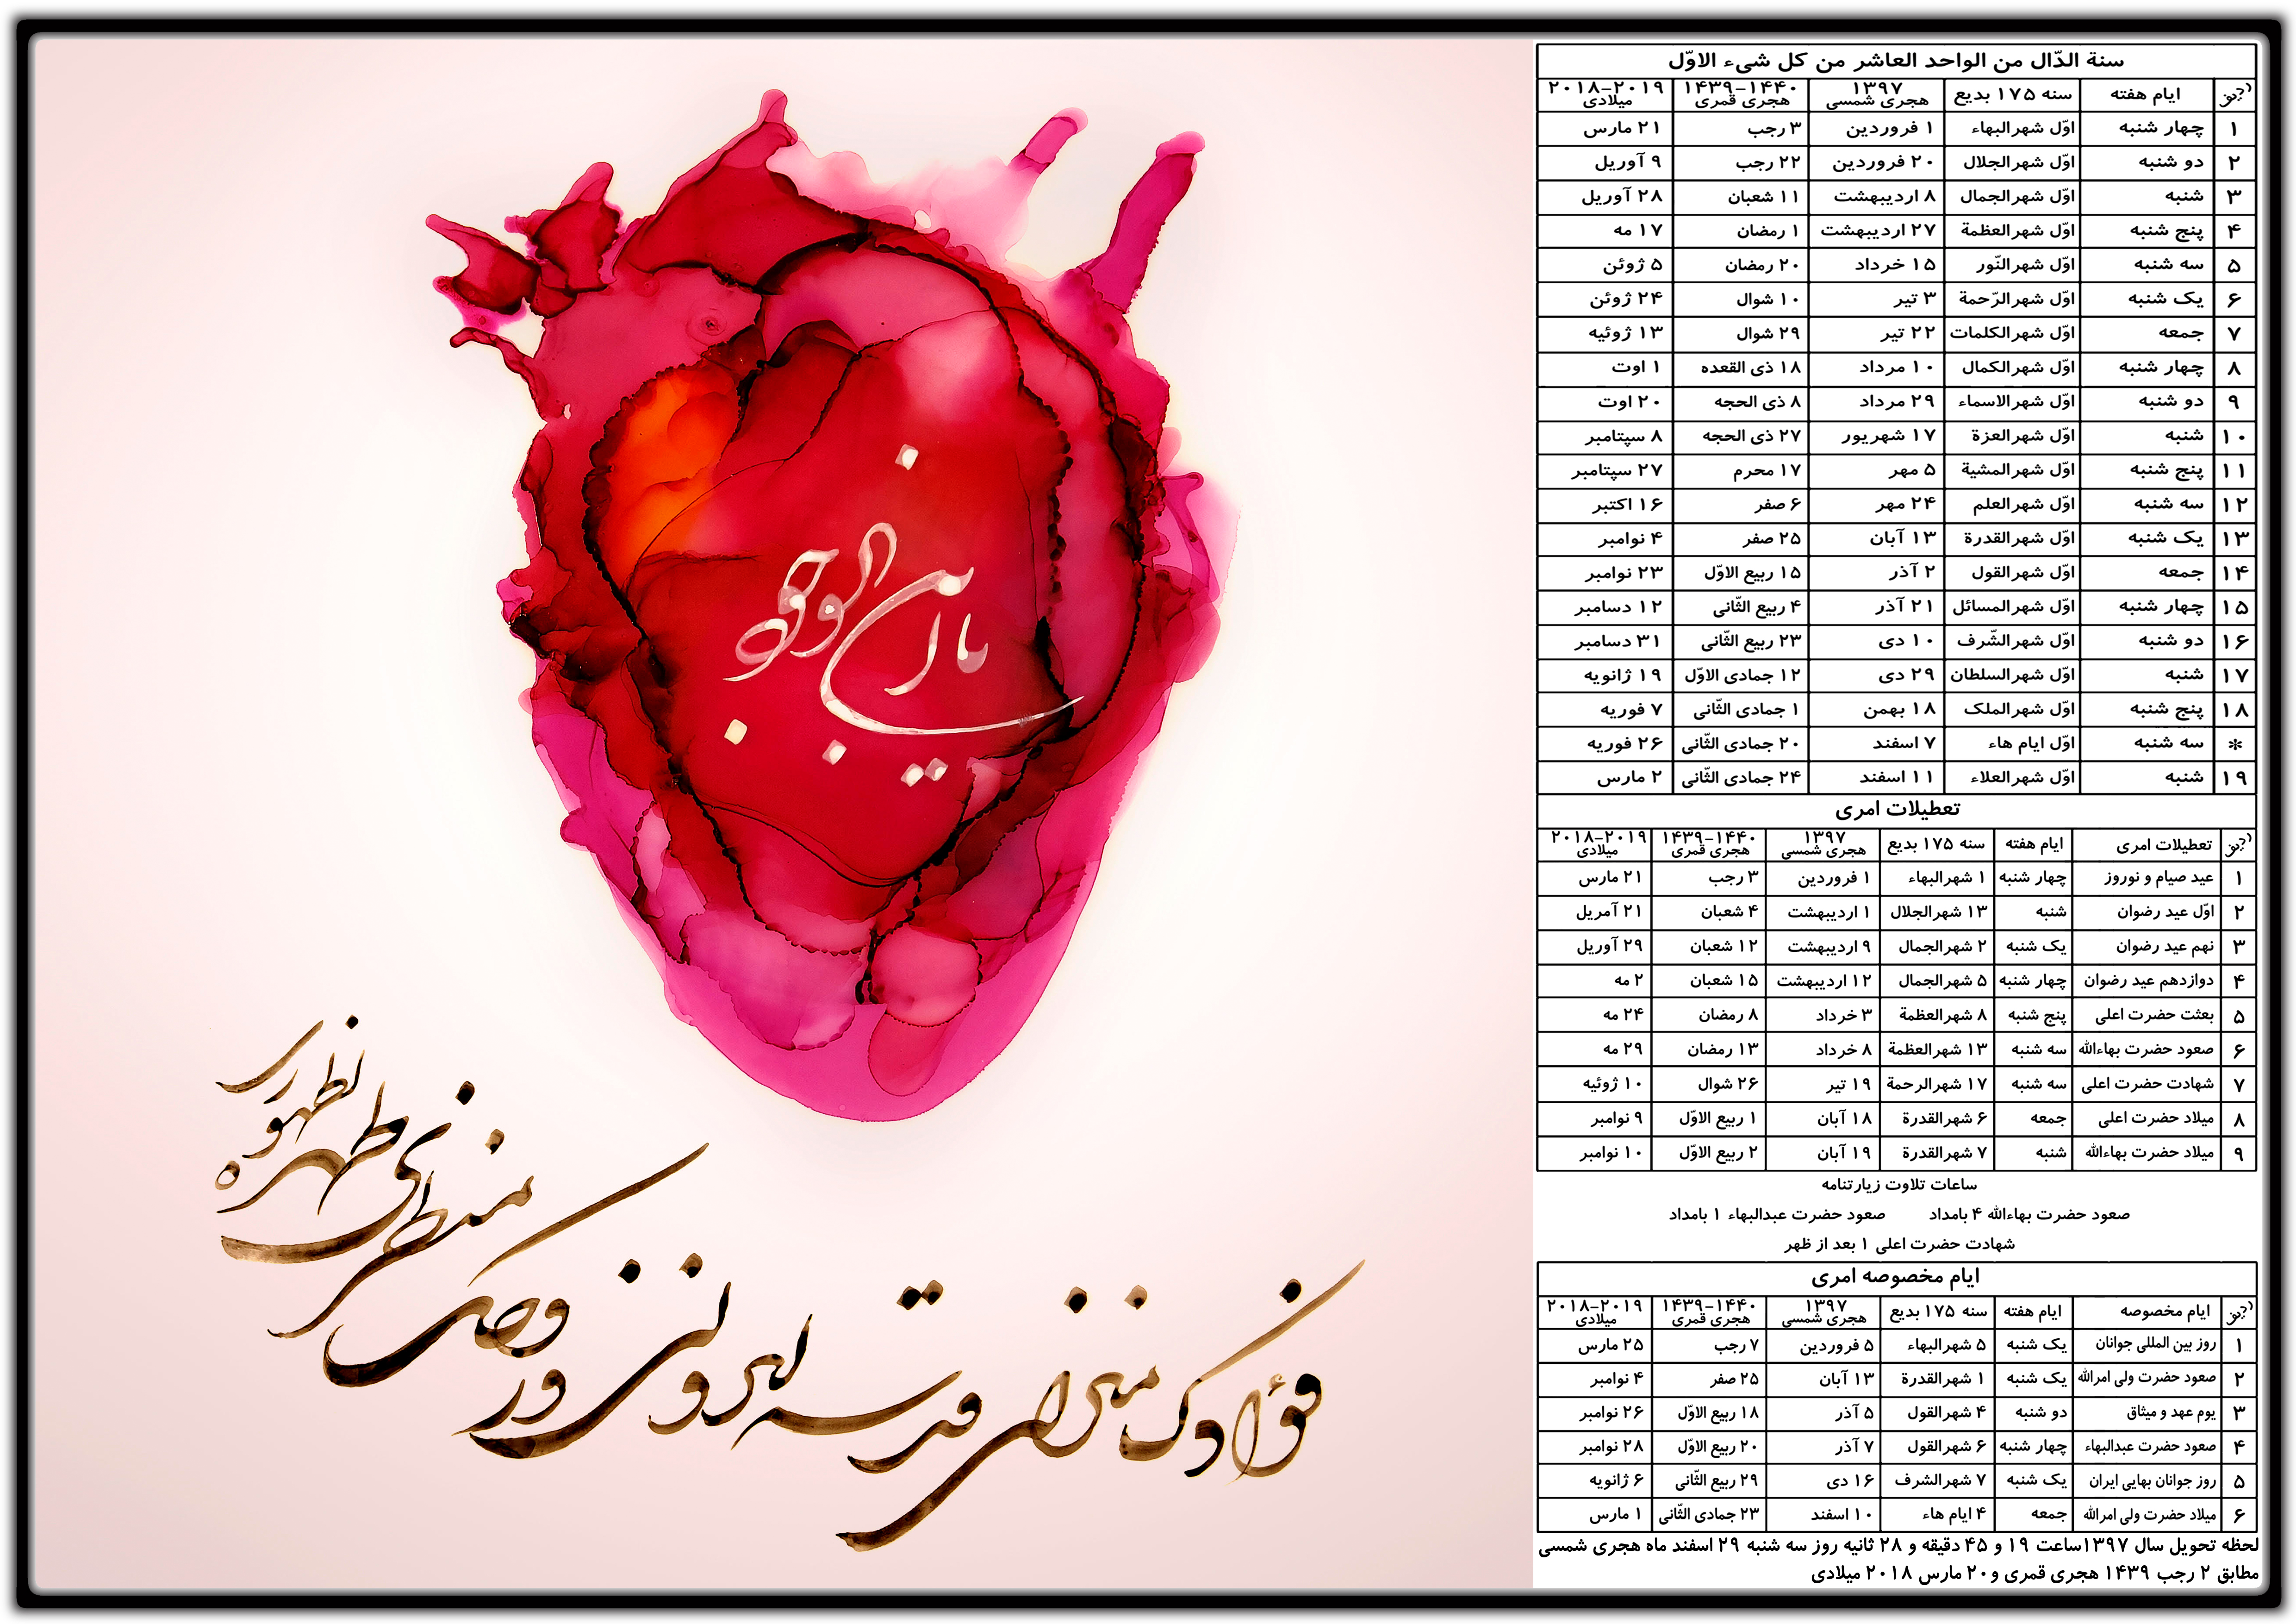 سنة الدّال من الواحد العاشر من کل شیء الاوّل
ردیف ایام هفته سنه ۱۷۵ بدیع ۱۳۹۷ هجری شمسی ۱۴۳۹-۱۴۴۰ هجری قمری ۲۰۱۸-۲۰۱۹ میلادی
۱ چهار شنبه اوّل شهرالبهاء ۱ فروردین ۳ رجب ۲۱ مارس
۲ دو شنبه اوّل شهرالجلال ۲۰ فروردین ۲۲ رجب ۹ آوریل
۳ شنبه اوّل شهرالجمال ۸ اردیبهشت ۱۱ شعبان ۲۸ آوریل
۴ پنج شنبه اوّل شهرالعظمة ۲۷ اردیبهشت ۱ رمضان ۱۷ مه
۵ سه شنبه اوّل شهرالنّور ۱۵ خرداد ۲۰ رمضان ۵ ژوئن
۶ یک شنبه اوّل شهرالرّحمة ۳ تیر ۱۰ شوال ۲۴ ژوئن
۷ جمعه اوّل شهرالکلمات ۲۲ تیر ۲۹ شوال ۱۳ ژوئیه
۸ چهار شنبه اوّل شهرالکمال ۱۰ مرداد ۱۸ ذی القعده ۱ اوت
۹ دو شنبه اوّل شهرالاسماء ۲۹ مرداد ۸ ذی الحجه ۲۰ اوت
۱۰ شنبه اوّل شهرالعزة ۱۷ شهریور ۲۷ ذی الحجه ۸ سپتامبر
۱۱ پنج شنبه اوّل شهرالمشیة ۵ مهر ۱۷ محرم ۲۷ سپتامبر
۱۲ سه شنبه اوّل شهرالعلم ۲۴ مهر ۶ صفر ۱۶ اکتبر
۱۳ یک شنبه اوّل شهرالقدرة ۱۳ آبان ۲۵ صفر ۴ نوامبر
۱۴ جمعه اوّل شهرالقول ۲ آذر ۱۵ ربیع الاوّل ۲۳ نوامبر
۱۵ چهار شنبه اوّل شهرالمسائل ۲۱ آذر ۴ ربیع الثّانی ۱۲ دسامبر
۱۶ دو شنبه اوّل شهرالشّرف ۱۰ دی ۲۳ ربیع الثّانی ۳۱ دسامبر
۱۷ شنبه اوّل شهرالسلطان ۲۹ دی ۱۲ جمادی الاوّل ۱۹ ژانویه
۱۸ پنج شنبه اوّل شهرالملک ۱۸ بهمن ۱ جمادی الثّانی ۷ فوریه
* سه شنبه اوّل ایام هاء ۷ اسفند ۲۰ جمادی الثّانی ۲۶ فوریه
۱۹ شنبه اوّل شهرالعلاء ۱۱ اسفند ۲۴ جمادی الثّانی ۲ مارس
تعطیلات امری
ردیف تعطیلات امری ایام هفته سنه ۱۷۵ بدیع ۱۳۹۷ هجری شمسی ۱۴۳۹-۱۴۴۰ هجری قمری ۲۰۱۸-۲۰۱۹ میلادی
۱ عید صیام و نوروز چهار شنبه ۱ شهرالبهاء ۱ فروردین ۳ رجب ۲۱ مارس
۲ اوّل عید رضوان شنبه ۱۳ شهرالجلال ۱ اردیبهشت ۴ شعبان ۲۱ آمریل
۳ نهم عید رضوان یک شنبه ۲ شهرالجمال ۹ اردیبهشت ۱۲ شعبان ۲۹ آوریل
۴ دوازدهم عید رضوان چهار شنبه ۵ شهرالجمال ۱۲ اردیبهشت ۱۵ شعبان ۲ مه
۵ بعثت حضرت اعلی پنج شنبه ۸ شهرالعظمة ۳ خرداد ۸ رمضان ۲۴ مه
۶ صعود حضرت بهاءالله سه شنبه ۱۳ شهرالعظمة ۸ خرداد ۱۳ رمضان ۲۹ مه
۷ شهادت حضرت اعلی سه شنبه ۱۷ شهرالرحمة ۱۹ تیر ۲۶ شوال ۱۰ ژوئیه
۸ میلاد حضرت اعلی جمعه ۶ شهرالقدرة ۱۸ آبان ۱ ربیع الاوّل ۹ نوامبر
۹ میلاد حضرت بهاءالله شنبه ۷ شهرالقدرة ۱۹ آبان ۲ ربیع الاوّل ۱۰ نوامبر
ساعات تلاوت زیارتنامه
صعود حضرت بهاءالله ۴ بامداد صعود حضرت عبدالبهاء ۱ بامداد
شهادت حضرت اعلی ۱ بعد از ظهر
ایام مخصوصه امری
ردیف ایام مخصوصه ایام هفته سنه ۱۷۵ بدیع ۱۳۹۷ هجری شمسی ۱۴۳۹-۱۴۴۰ هجری قمری ۲۰۱۸-۲۰۱۹ میلادی
۱ روز بین المللی جوانان یک شنبه ۵ شهرالبهاء ۵ فروردین ۷ رجب ۲۵ مارس
۲ صعود حضرت ولی امرالله یک شنبه ۱ شهرالقدرة ۱۳ آبان ۲۵ صفر ۴ نوامبر
۳ یوم عهد و میثاق دو شنبه ۴ شهرالقول ۵ آذر ۱۸ ربیع الاوّل ۲۶ نوامبر
۴ صعود حضرت عبدالبهاء چهار شنبه ۶ شهرالقول ۷ آذر ۲۰ ربیع الاوّل ۲۸ نوامبر
۵ روز جوانان بهایی ایران یک شنبه ۷ شهرالشرف ۱۶ دی ۲۹ ربیع الثّانی ۶ ژانویه
۶ میلاد حضرت ولی امرالله جمعه ۴ ایام هاء ۱۰ اسفند ۲۳ جمادی الثّانی ۱ مارس
لحظه تحویل سال ۱۳۹۷ساعت ۱۹ و ۴۵ دقیقه و ۲۸ ثانیه روز سه شنبه ۲۹ اسفند ماه هجری شمسی
مطابق ۲ رجب ۱۴۳۹ هجری قمری و۲۰ مارس ۲۰۱۸ میلادی
یا ابن الوجود
فؤادک منزلی قدسه لنزولی و روحک منظری طهرها لظهوری